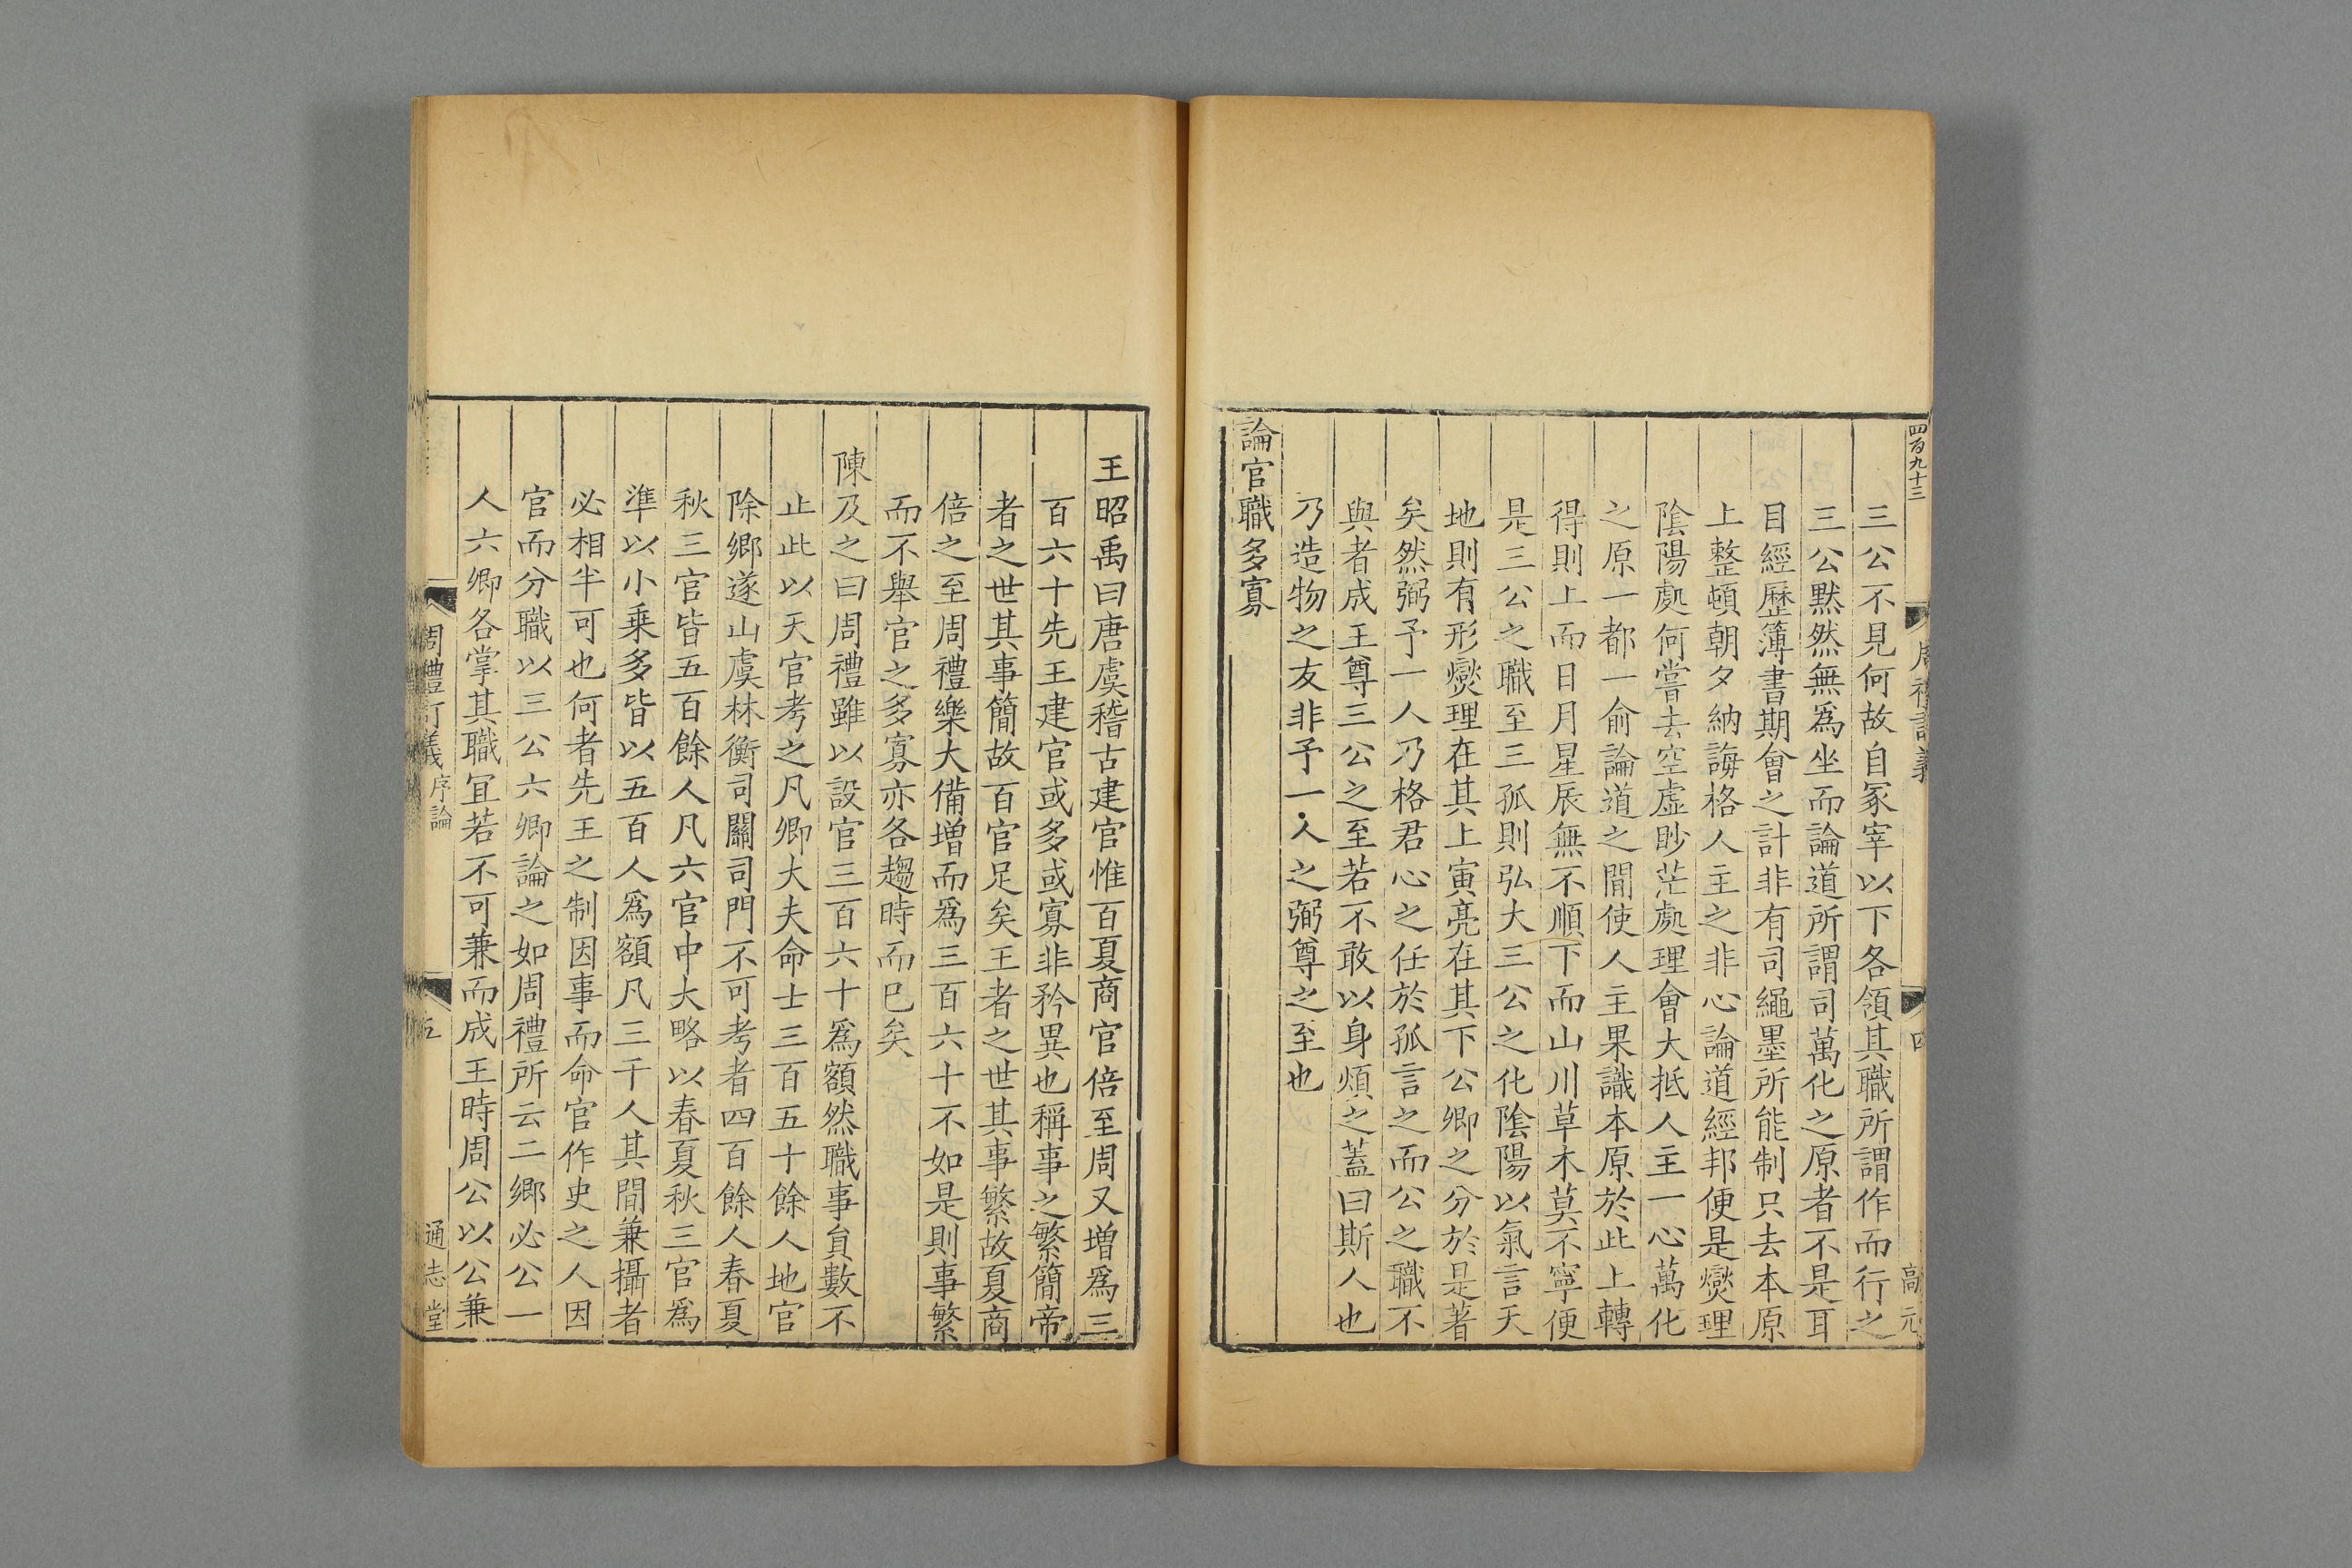 四百九十三
周禮訂義
四
高元
三公不見何故自冢宰以下各領其職所謂作而行之
三公黙然無爲坐而論道所謂司萬化之原者不是耳
目經歷簿書期會之計非有司繩墨所能制只去本原
上整頓朝夕納誨格人主之非心論道經邦便是爕理
陰陽處何嘗去空虛眇茫處理會大抵人主一心萬化
之原一都一俞論道之間使人主果識本原於此上轉
得則上而日月星辰無不順下而山川草木莫不寧便
是三公之職至三孤則弘大三公之化陰陽以氣言天
地則有形爕理在其上寅亮在其下公卿之分於是著
矣然弼予一人乃格君心之任於孤言之而公之職不
與者成王尊三公之至若不敢以身煩之蓋曰斯人也
乃造物之友非予一人之弼尊之至也
論官職多寡
王昭禹曰唐虞稽古建官惟百夏商官倍至周又增爲三
百六十先王建官或多或寡非矜異也稱事之繁簡帝
者之世其事簡故百官足矣王者之世其事繁故夏商
倍之至周禮樂大備增而爲三百六十不如是則事繁
而不舉官之多寡亦各趨時而已矣
陳及之曰周禮雖以設官三百六十爲額然職事員數不
止此以天官考之凡卿大夫命士三百五十餘人地官
除鄉遂山虞林衡司關司門不可考者四百餘人春夏
秋三官皆五百餘人凡六官中大略以春夏秋三官爲
準以小乗多皆以五百人爲額凡三千人其間兼攝者
必相半可也何者先王之制因事而命官作史之人因
官而分職以三公六卿論之如周禮所云二鄉必公一
人六卿各掌其職宜若不可兼而成王時周公以公兼
周禮訂義 序論
五
通志堂